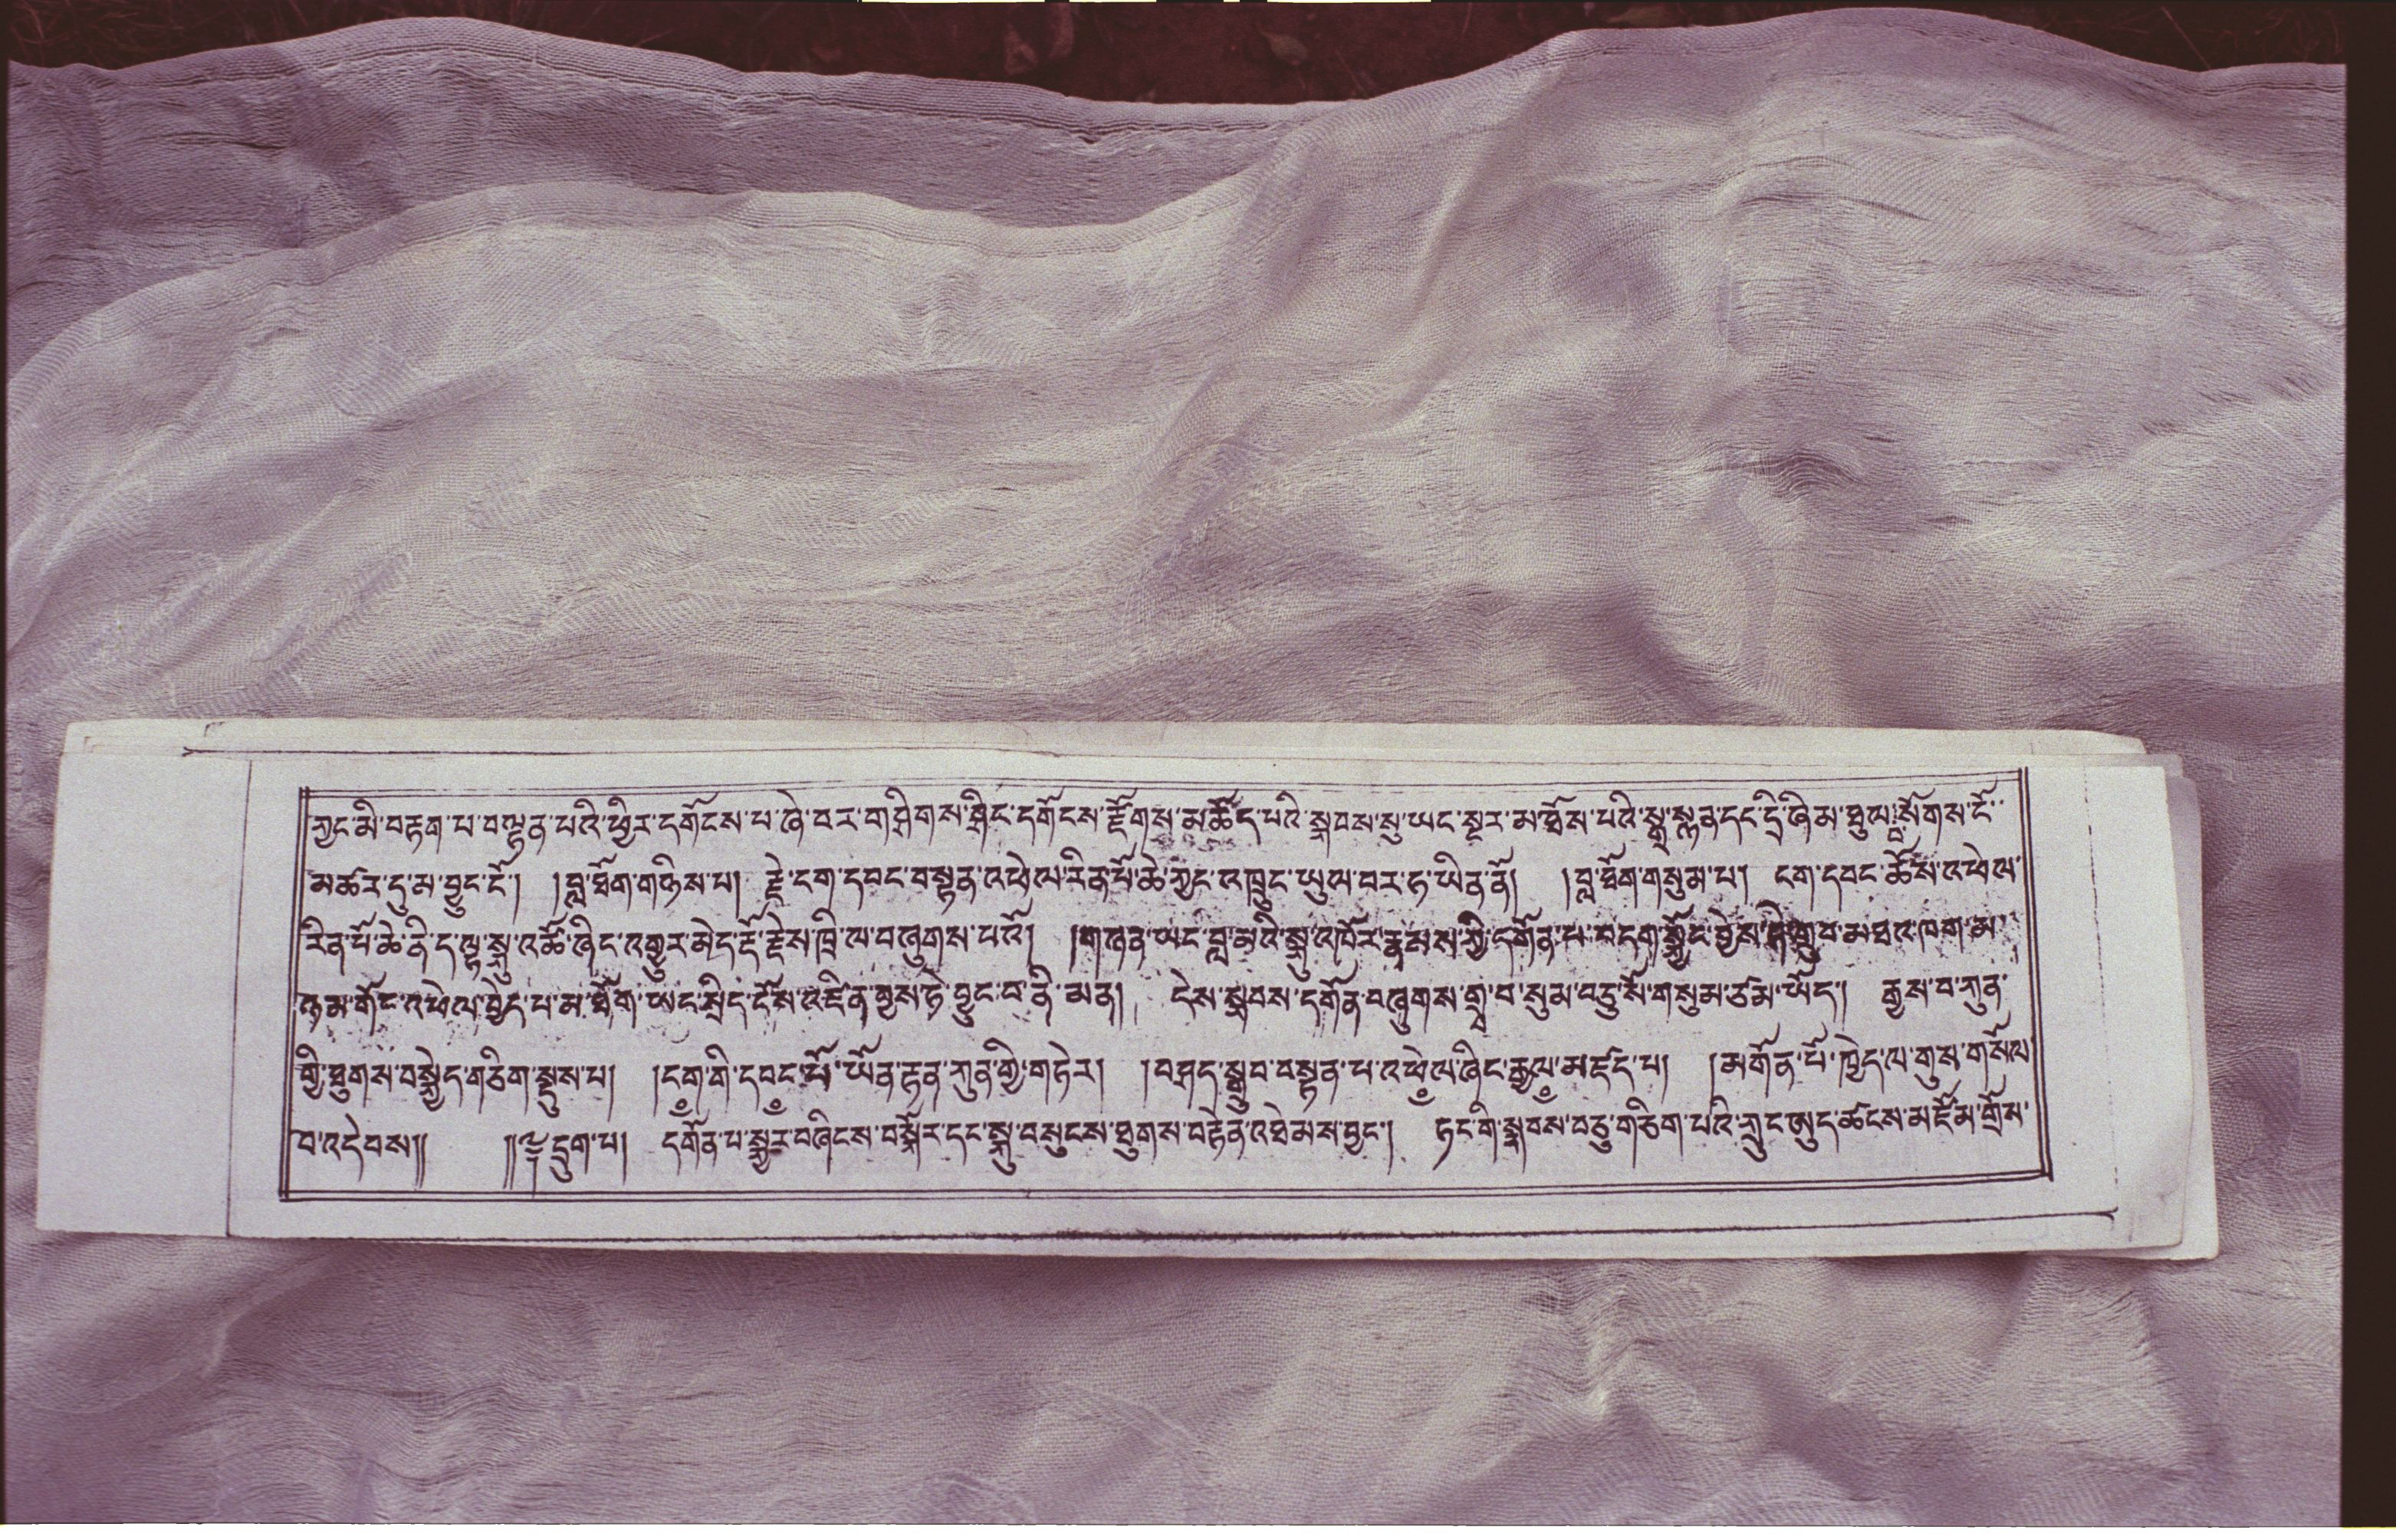 ཀྱང་མི་བརྟག་པ་བལྟན་པའི་ཕྱིར་དགོངས་པ་ཞེ་བར་གཤེགས་ཤིང་དགོངས་རྫོགས་མཆོད་པའི་སྐབས་སུ་ཡང་སྔར་མ་ཐོས་པའི་སྒྲ་སྙན་དང་དྲི་ཞིམ་ཐུལ་སོགས་ངོ་
མཚར་དུ་མ་བྱུང་ངོ་། །བླ་ཐོག་གཉིས་པ། རྗེ་ངག་དབང་བསྟན་འཕེལ་རིན་པོ་ཆེ་ཀྱང་འཁྲུང་ཡུལ་བར་ཧ་ཡིན་ནོ། །བླ་ཐོག་གསུམ་པ། ངག་དབང་ཆོས་འཕེལ་
རིན་པོ་ཆེ་ནི་ད་ལྟ་སྐུ་འཚོ་ཞིང་འགྱུར་མེད་རྡོ་རྗེས་ཁྲི་ལ་བཞུགས་པའོ། །གཞན་ཡང་བླ་མའི་སྐུ་འཁོར་རྣམས་ཀྱི་དགོན་པ་བདག་སྐྱོང་བྱེས་ཏེ་གྲྭ་བ་མཐའ་ཁག་མ་
ཉམ་གོང་འཕེལ་བྱེད་པ་མ་ཐོག་ཡང་སྲིད་ངོས་འཛིན་བྱས་ཏེ་བྱུང་བ་ནི་མན། དེས་སྐབས་དགོན་བཞུགས་གྲྭ་བ་སུམ་བཅུ་སོ་གསུམ་ཙམ་ཡོད། རྒྱས་བ་ཀུན་
གྱི་ཐུགས་བསྐྱེད་གཅིག་སྡུས་པ། །ངག་གི་དབང་པོ་ཡོན་ཏན་ཀུན་གྱི་གཏེར། །བཤད་སྒྲུབ་བསྟན་པ་འཕེལ་ཞིང་རྒྱལ་མཛད་པ། །མགོན་པོ་ཁྱེད་ལ་གུས་གསོལ་
བ་འདེབས༎ ༎༈ དྲུག་པ། དགོན་པ་སླར་བཞེངས་བསྐོར་དང་སྐུ་གསུངས་ཐུགས་བརྟེན་འཐེམས་བྱང་། ཧང་གི་སྐབས་བཅུ་གཅིག་པའི་ཀྲུང་ཨུད་ཚངས་མཛོམ་གྲོས་